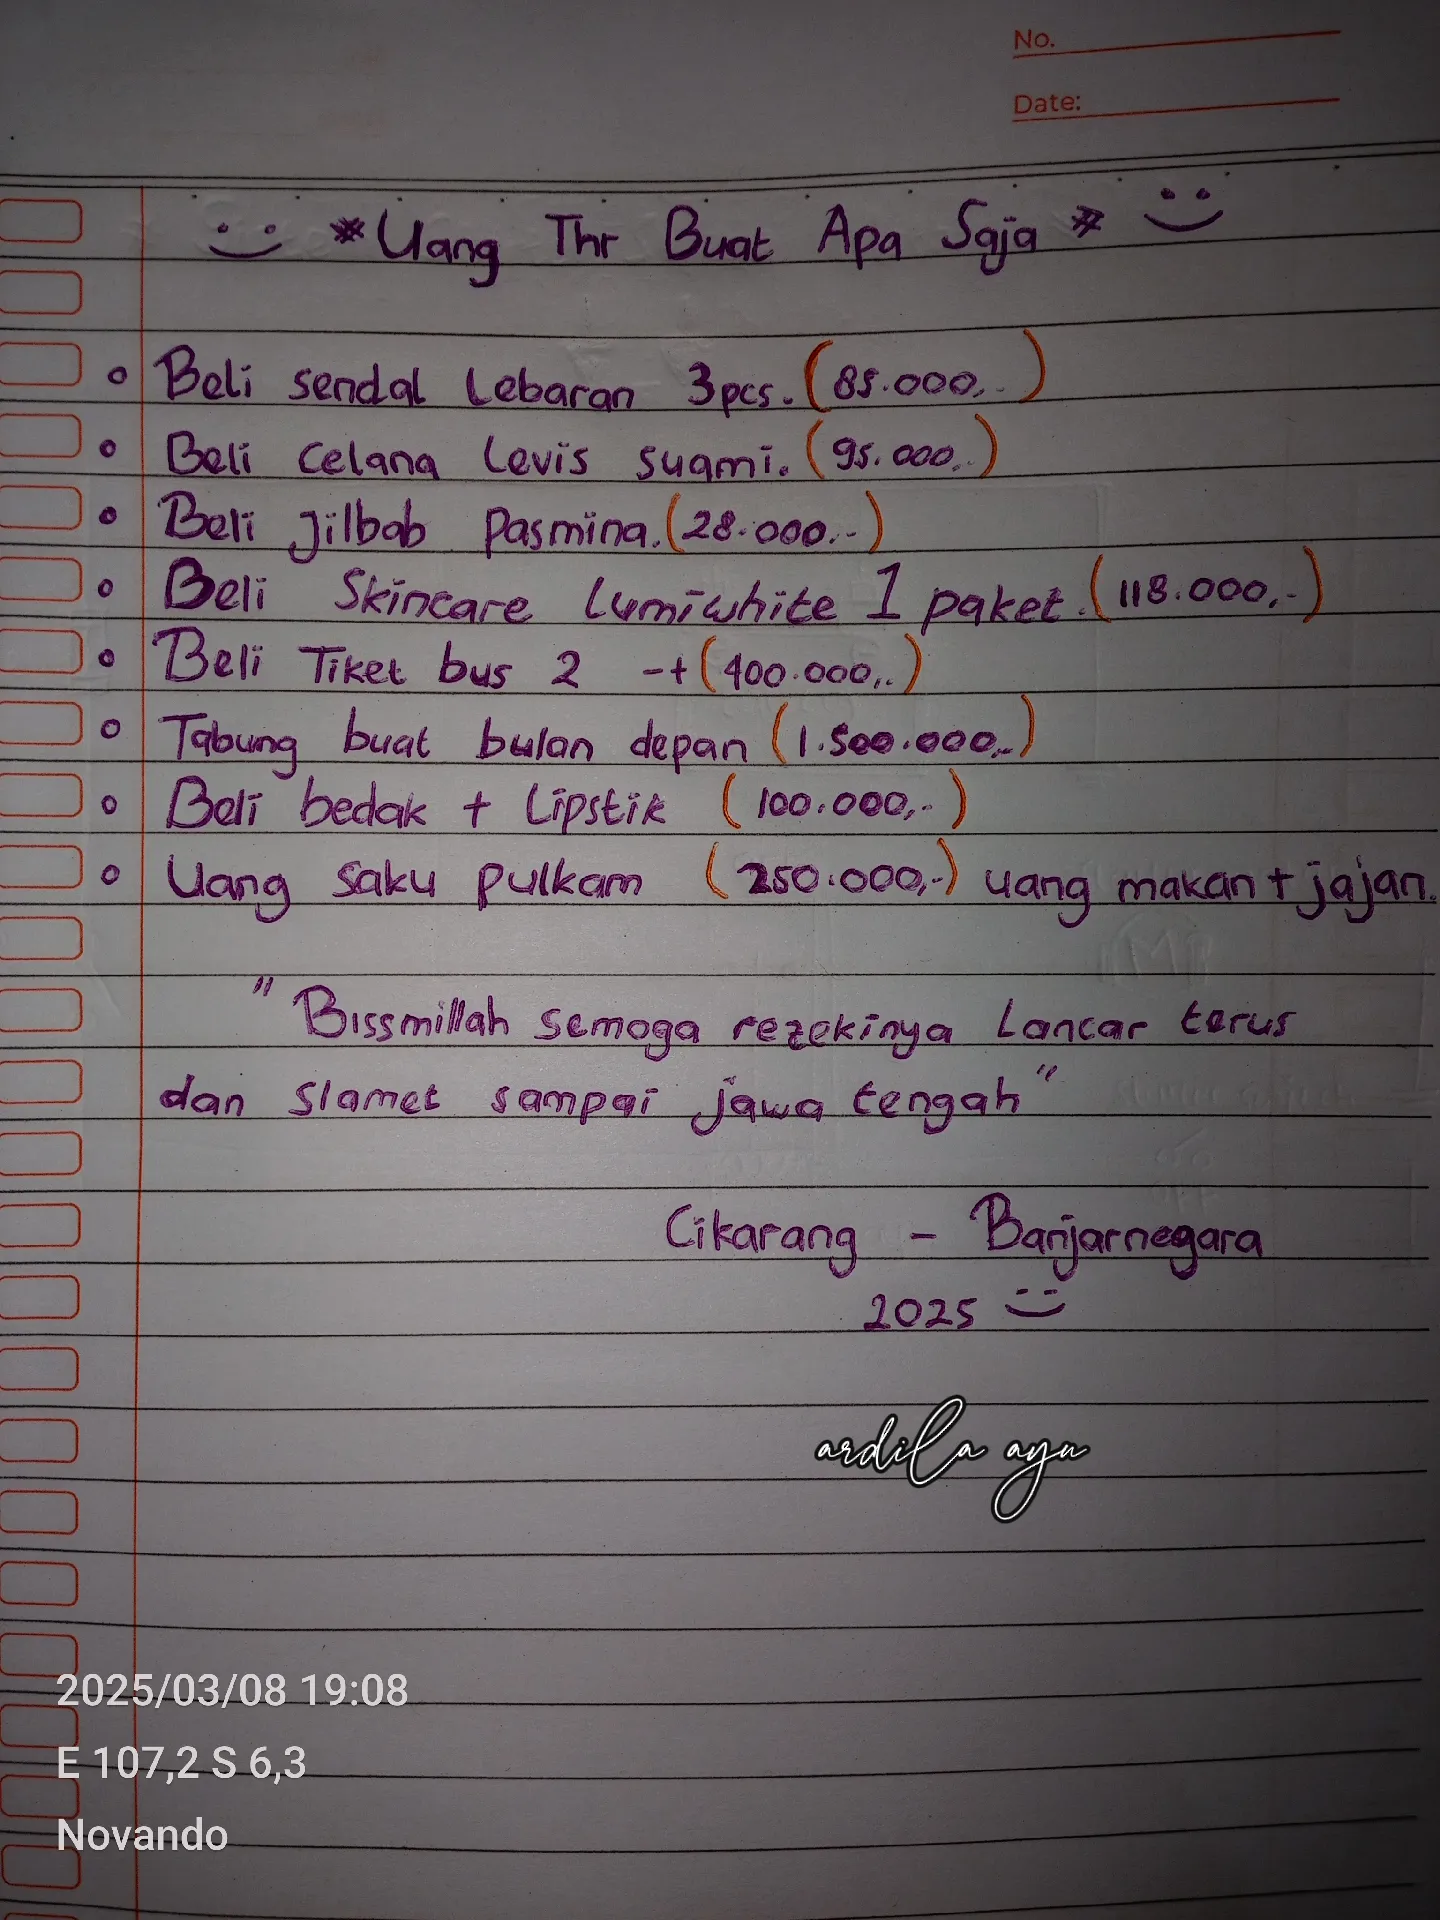 No.
Date:
* Uang Thr Buat Apa Saja *
Beli sendal Lebaran 3pcs. (85.000,-)
Beli celana Levis suami. (95.000,-)
Beli jilbab Pasmina. (28.000,-)
Beli Skincare Lumiwhite 1 paket. (118.000,-)
Beli Tiket bus 2 -+ (400.000,-)
Tabung buat bulan depan (1.500.000,-)
Beli bedak + Lipstik (100.000,-)
Uang saku pulkam (250.000,-) uang makan + jajan.
"Bissmillah semoga rezekinya Lancar terus
dan Slamet sampai jawa tengah"
Cikarang - Banjarnegara
2025
ardila ayu
2025/03/08 19:08
E 107,2 S 6,3
Novando